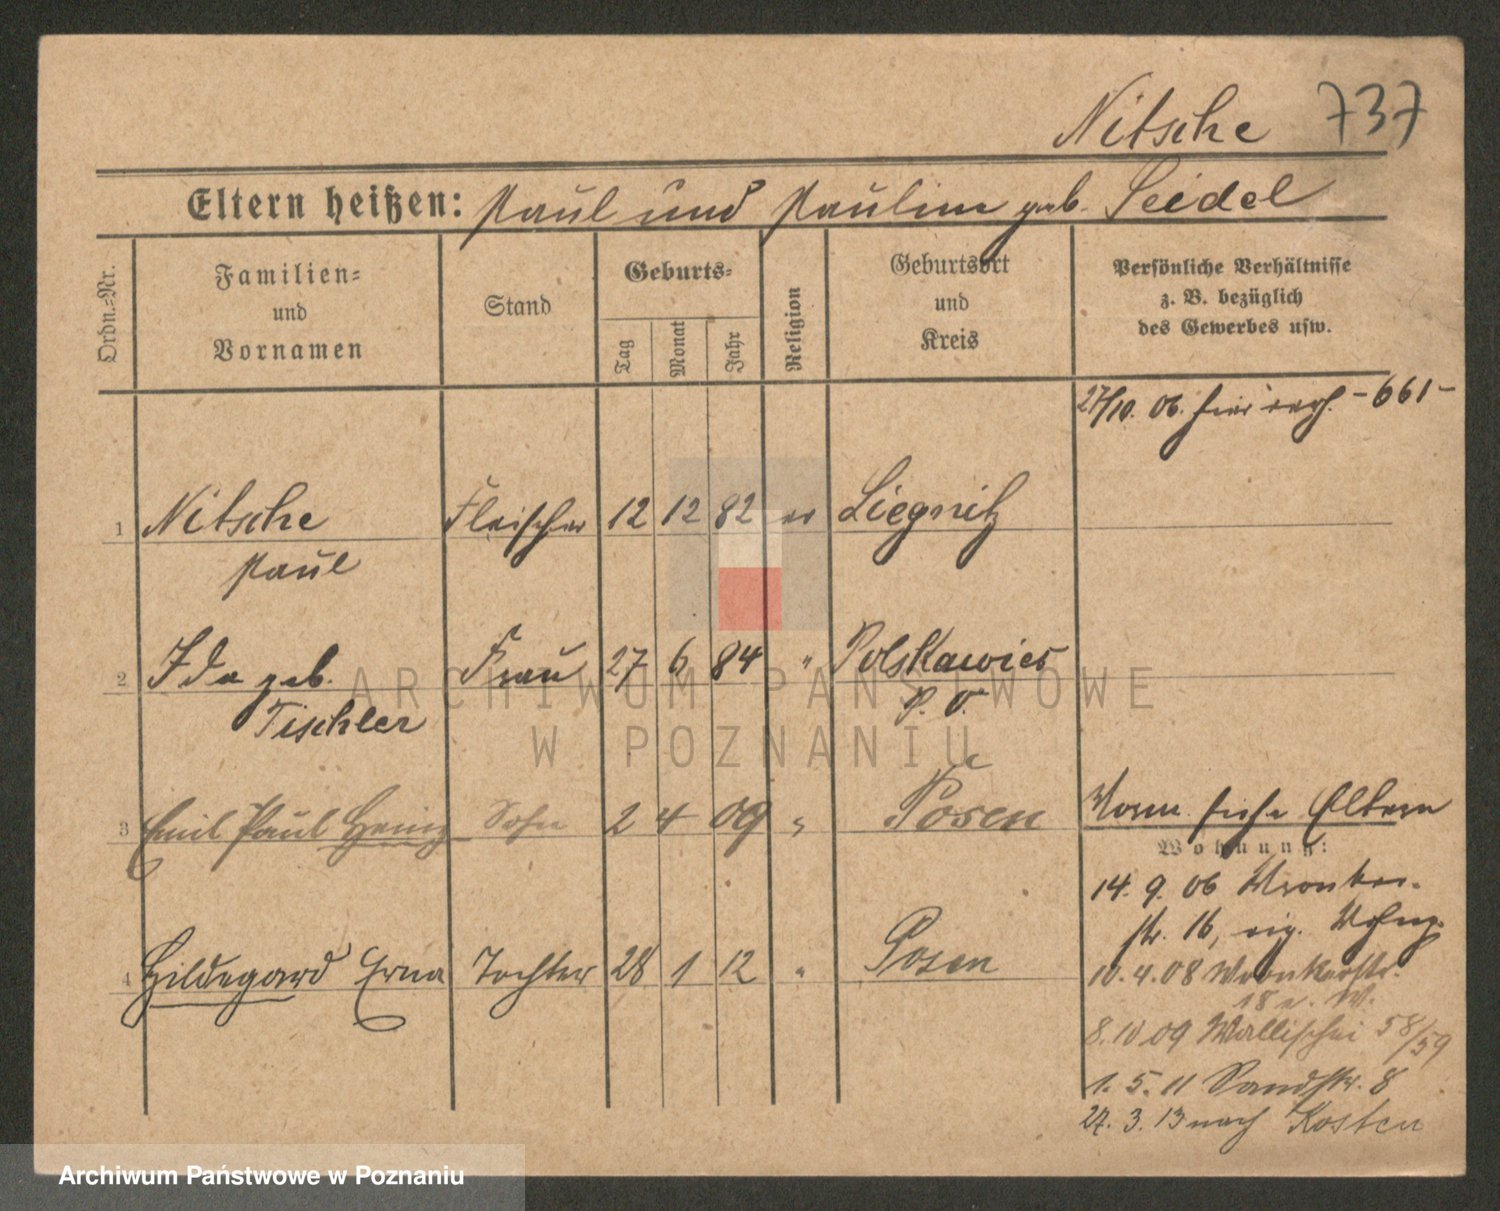 Nitsche 737
Eltern heißen: Paul und Pauline geb. Seidel
Ordn.-Nr.
Familien-
und
Vornamen
Stand
Geburts-
Tag
Monat
Jahr
Religion
Geburtsort
und
Kreis
Persönliche Verhältnisse
z. B. bezüglich
des Gewerbes usw.
27/10. 06. hier -661-
1 Nitsche Fleischer 12 12 82 ev Liegnitz
Paul
2 Ida geb. Frau 27 6 84 " Polskawies
Tischler P. O.
3 Emil Paul Heinz Sohn 2 4 09 " Posen
4 Hildegard Erna Tochter 28 1 12 " Posen
Vorm. siehe Eltern
Wohnung:
14. 9. 06 Wronker-
str. 16, eig. Wohng.
10. 4. 08 Wronkerstr.
18 e. W.
8. 10 09 Wallischei 58/59
1. 5. 11 Sandstr. 8
27. 3. 13 nach Kosten
ARCHIWUM PAŃSTWOWE
W POZNANIU
Archiwum Państwowe w Poznaniu